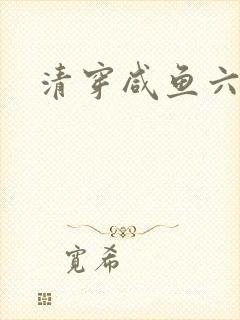 清穿咸鱼六
寛希